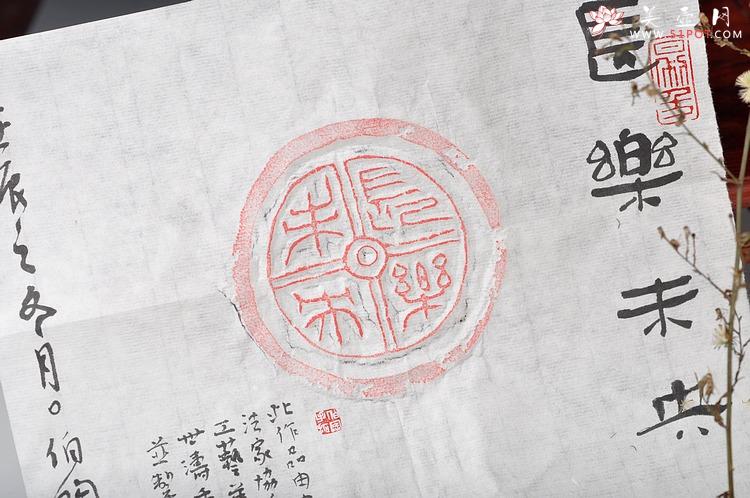 美壶网
WWW.51POT.COM
長樂未央
長樂未央
此作品由
法家協
工藝美
世濤
並製
壬辰之冬月。伯